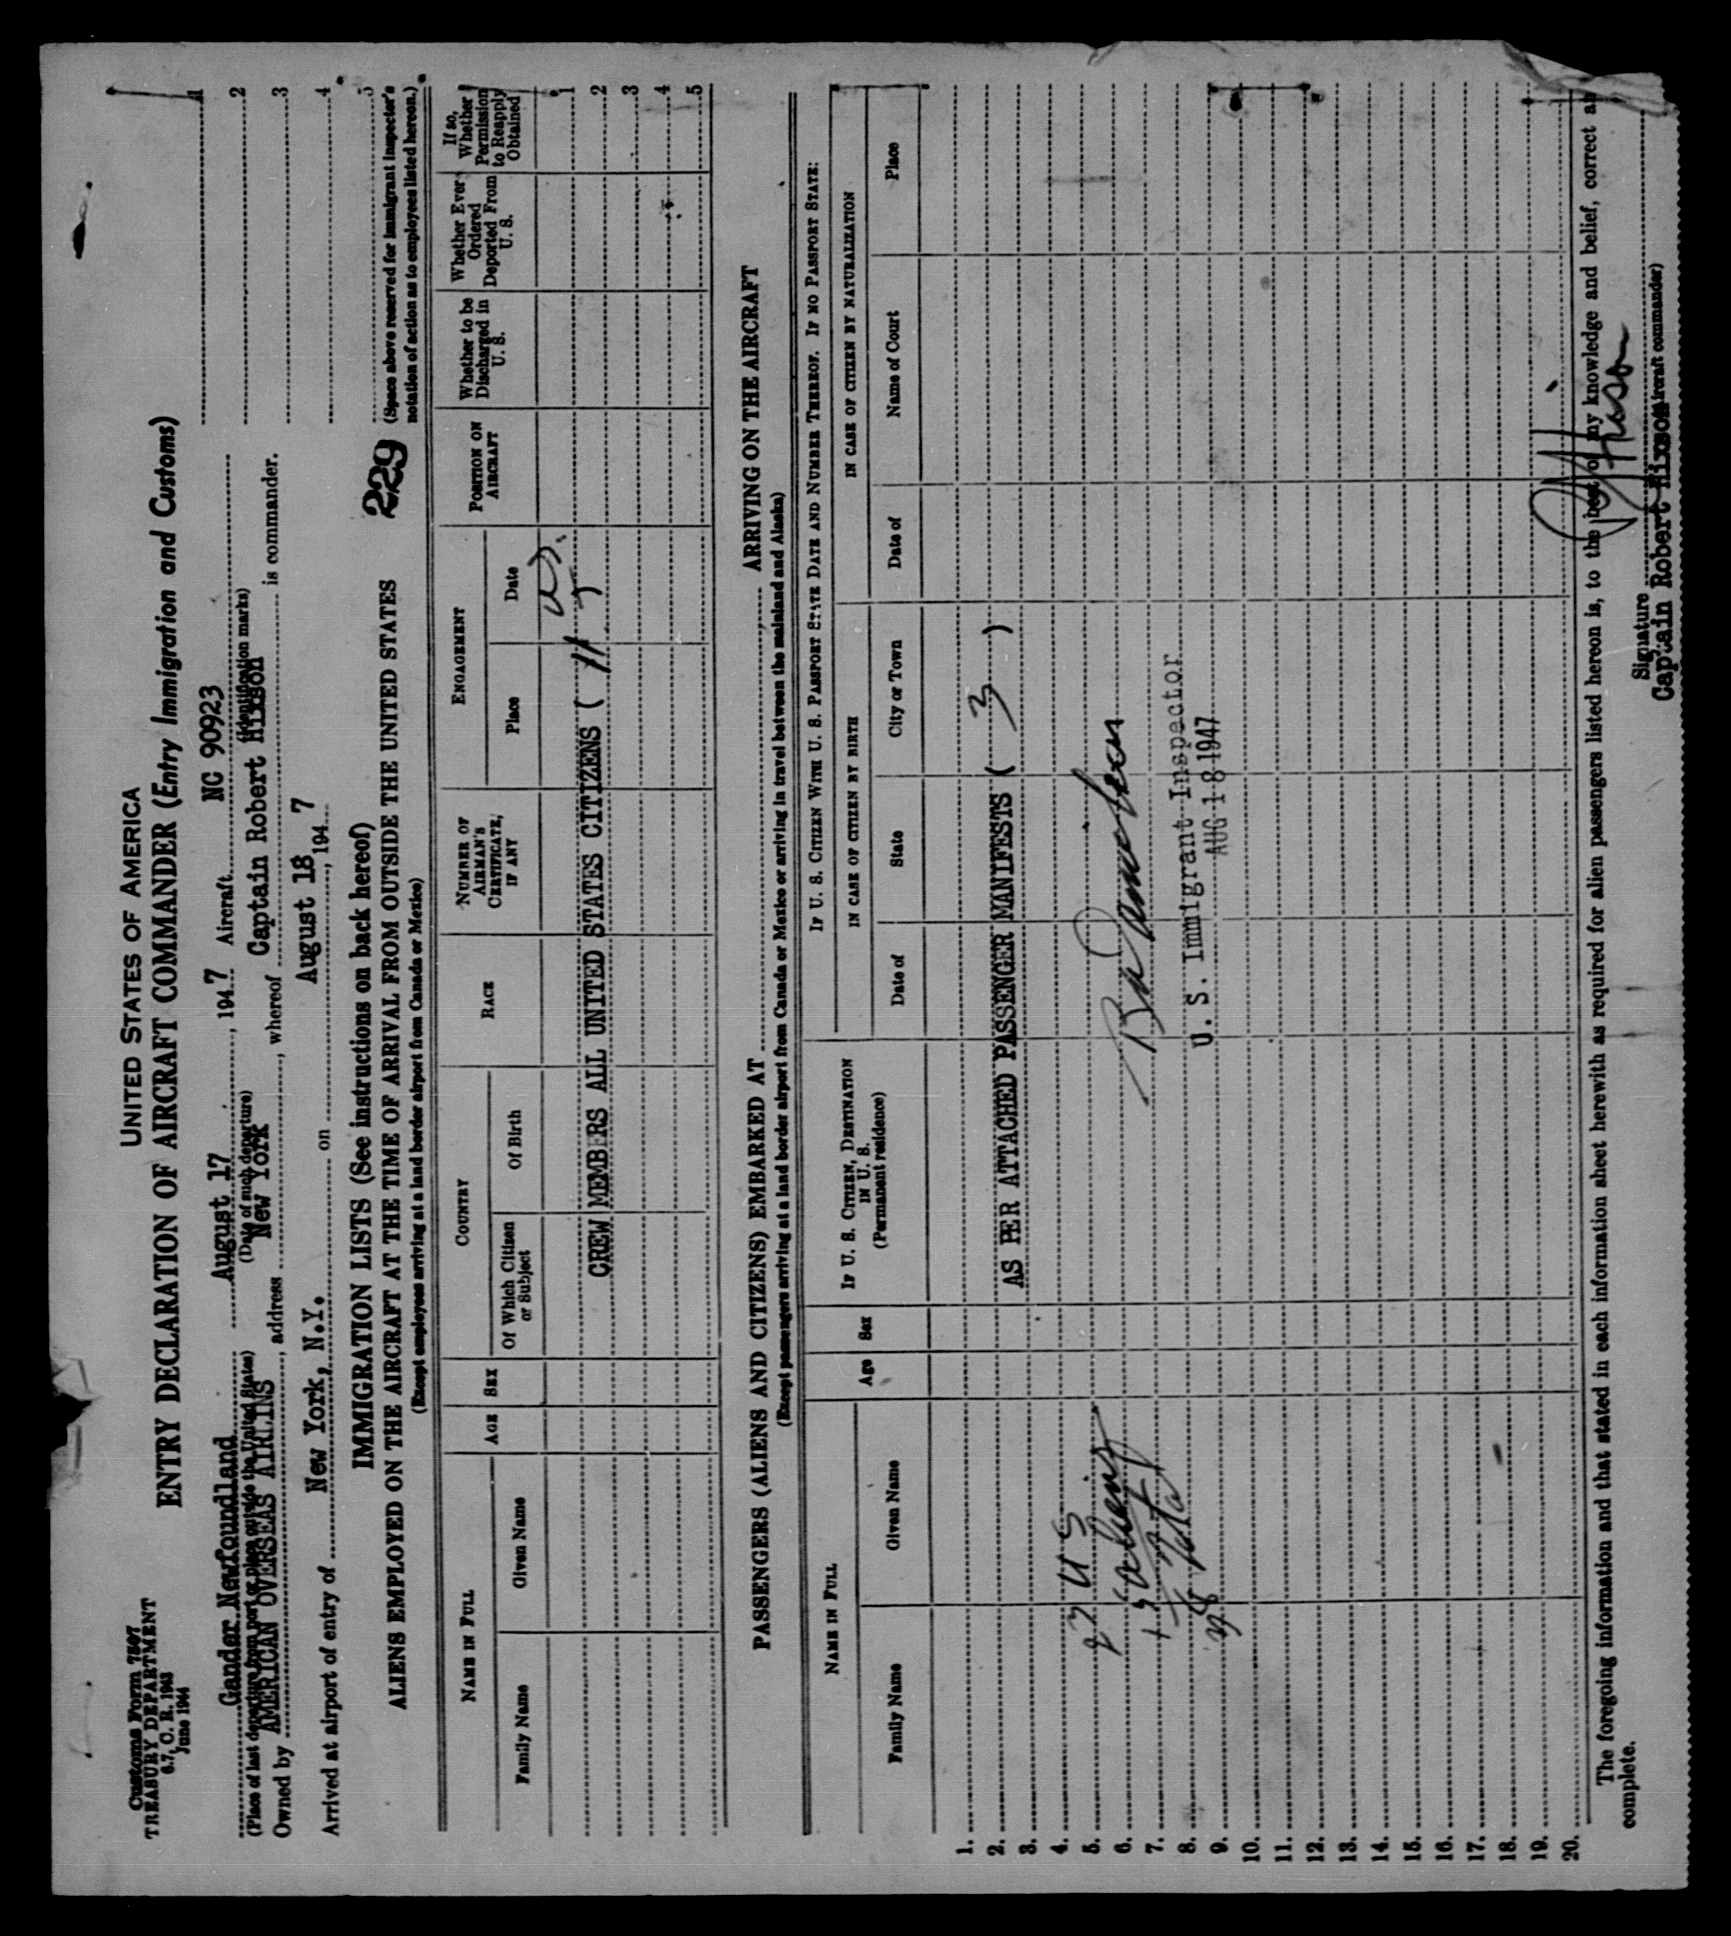 Customs Form 7507
TREASURY DEPARTMENT
6.7, C. R. 1943
June 1944
UNITED STATES OF AMERICA
ENTRY DECLARATION OF AIRCRAFT COMMANDER (Entry Immigration and Customs)
Gander Newfoundland August 17, 1947 Aircraft NC 90923
(Place of last departure from port or place outside the United States) (Date of such departure) (Identification marks)
Owned by AMERICAN OVERSEAS AIRLINS, address New York, whereof Captain Robert Hixson is commander.
Arrived at airport of entry of New York, N.Y. on August 18, 1947
1
2
3
4
5
(Space above reserved for immigrant inspector's notation of action as to employees listed hereon.)
229
IMMIGRATION LISTS (See instructions on back hereof)
ALIENS EMPLOYED ON THE AIRCRAFT AT THE TIME OF ARRIVAL FROM OUTSIDE THE UNITED STATES
(Except employees arriving at a land border airport from Canada or Mexico)
NAME IN FULL AGE SEX COUNTRY RACE NUMBER OF AIRMAN'S CERTIFICATE, IF ANY ENGAGEMENT POSITION ON AIRCRAFT Whether to be Discharged in U. S. Whether Ever Ordered Deported From U. S. If so, Whether Permission to Reapply Obtained
Family Name Given Name Of Which Citizen or Subject Of Birth Place Date
1
CREW MEMBERS ALL UNITED STATES CITIZENS ( 11 ) 2
3
4
5
PASSENGERS (ALIENS AND CITIZENS) EMBARKED AT ARRIVING ON THE AIRCRAFT
(Except passengers arriving at a land border airport from Canada or Mexico or arriving in travel between the mainland and Alaska)
NAME IN FULL Age Sex IF U. S. CITIZEN, DESTINATION IN U. S. (Permanent residence) IF U. S. CITIZEN WITH U. S. PASSPORT STATE DATE AND NUMBER THEREOF. IF NO PASSPORT STATE:
IN CASE OF CITIZEN BY BIRTH IN CASE OF CITIZEN BY NATURALIZATION
Family Name Given Name Date of State City or Town Date of Name of Court Place
1.
2. AS PER ATTACHED PASSENGER MANIFESTS ( 3 )
3.
4. US
5.
6.
7.
8. U. S. Immigrant Inspector
9. AUG 18 1947
10.
11.
12.
13.
14.
15.
16.
17.
18.
19.
20.
The foregoing information and that stated in each information sheet herewith as required for alien passengers listed hereon is, to the best of my knowledge and belief, correct an
complete.
Signature
Captain Robert Hixson (Aircraft commander)